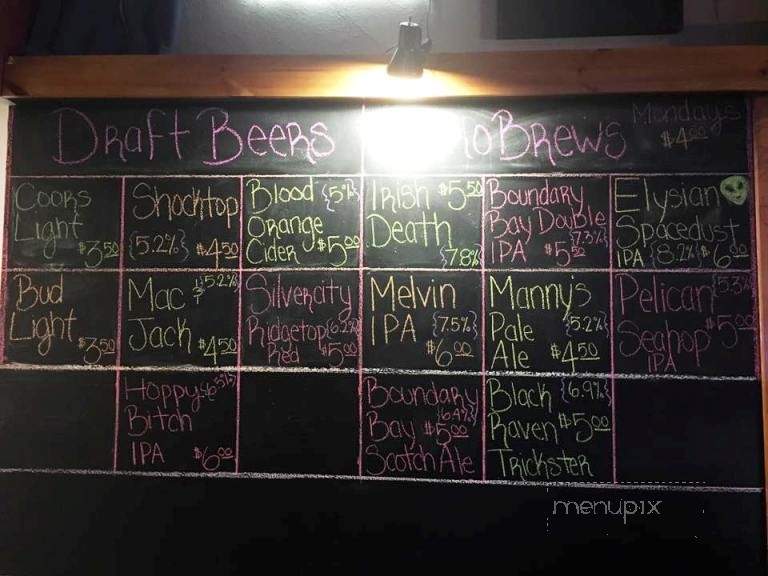 Draft Beers
oBrews
Mondays
$4.00
Coors
Light
$3.50
Shocktop
{5.2%} $4.50
Blood {5%}
Orange
Cider $5.00
Irish $5.50
Death
{7.8%}
Boundary
Bay Double
{7.3%}
IPA $5.50
Elysian
Spacedust
IPA {8.2%} $6.00
Bud
Light
$3.50
Mac & {5.2%}
Jack $4.50
Silvercity
Ridgetop {6.2%}
Red $5.00
Melvin
IPA {7.5%}
$6.00
Manny's
Pale {5.2%}
Ale $4.50
Pelican {5.3%}
Seahop $5.00
IPA
Hoppy {6.5%}
Bitch
IPA $6.00
Boundary
{6.4%}
Bay $5.00
Scotch Ale
Black {6.9%}
Raven $5.00
Trickster
menupix